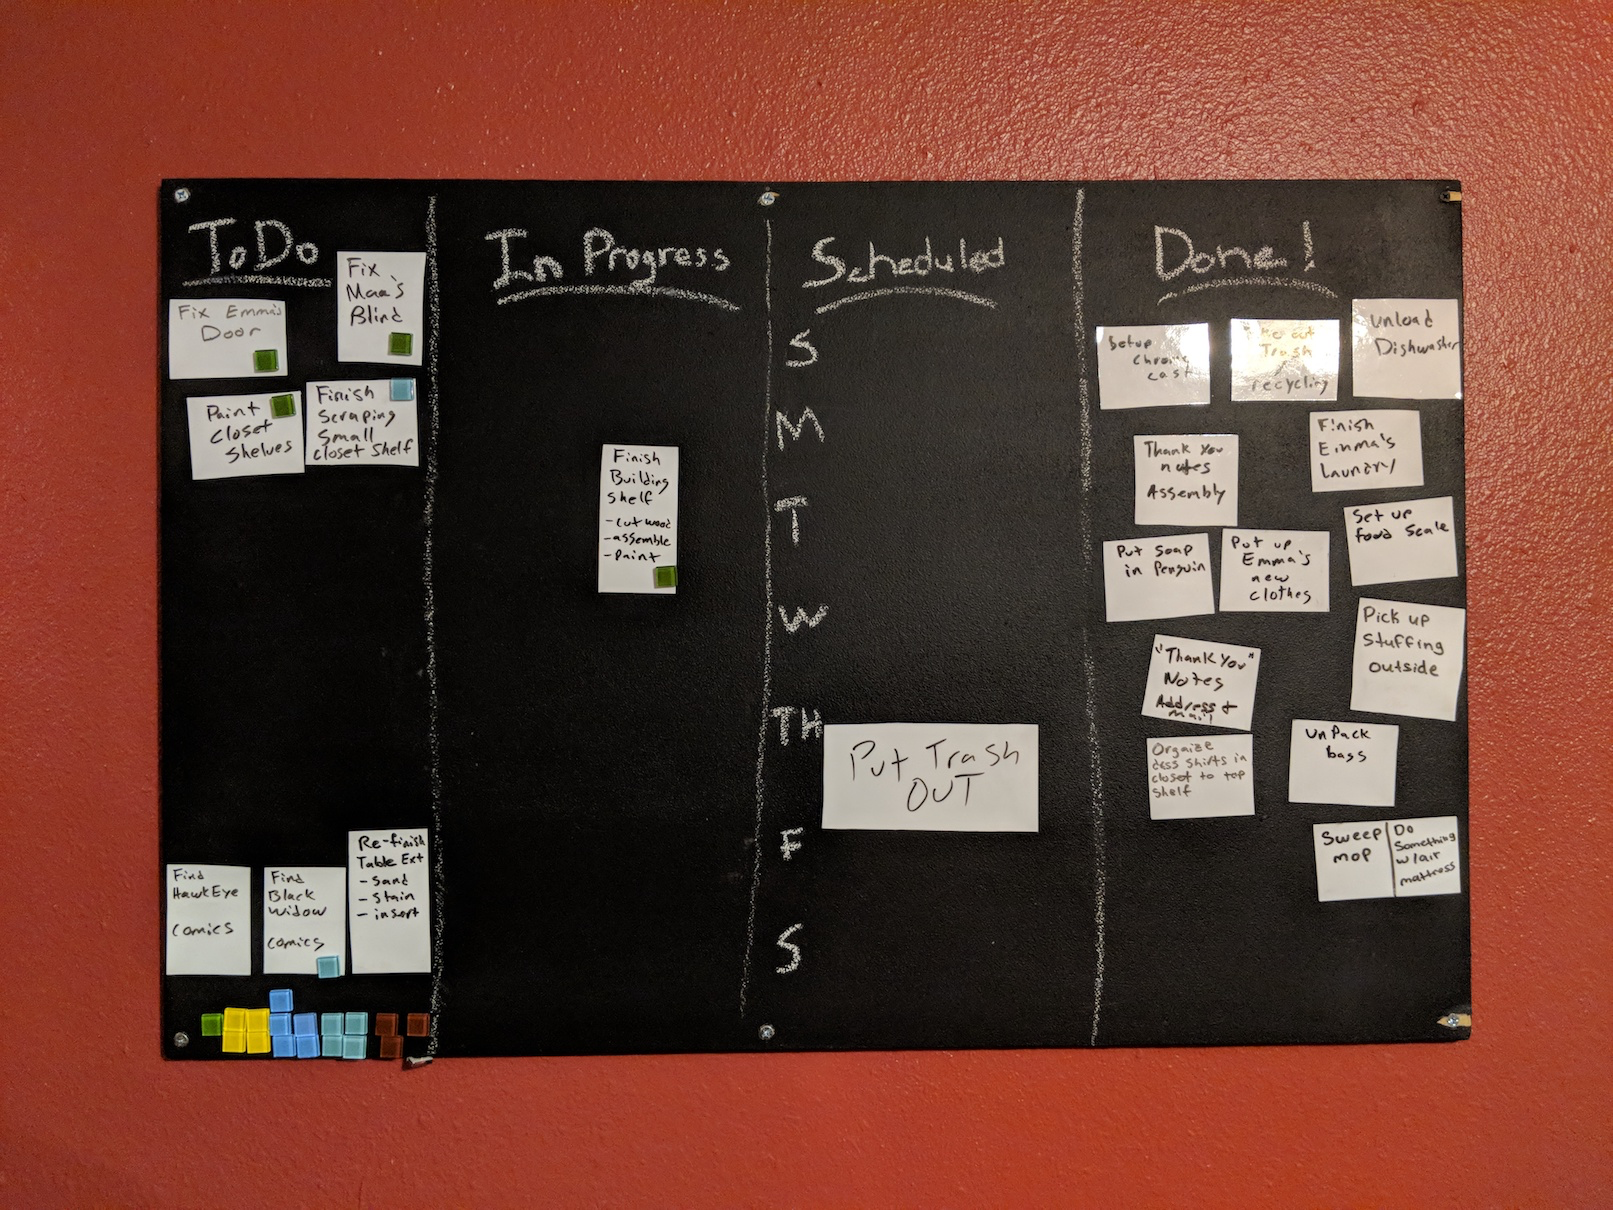 ToDo
Fix
Mae's
Blind
Fix Emma's
Door
Paint
Closet
Shelves
Finish
Scraping
Small
Closet Shelf
Find
HawkEye
Comics
Find
Black
Widow
Comics
Re-finish
Table Ext
- Sand
- Stain
- insert
In Progress
Finish
Building
Shelf
- cut wood
- assemble
- Paint
Scheduled
S
M
T
W
TH
Put Trash
OUT
F
S
Done!
Setup
Chrome
cast
out
Trash
recycling
Unload
Dishwasher
Thank You
notes
Assembly
Finish
Emma's
Laundry
Put Soap
in Penguin
Put up
Emma's
new
clothes
Set up
food Scale
"Thank You"
Notes
Address &
Mail
Pick up
Stuffing
outside
Orgaize
shirts in
closet to top
shelf
UnPack
bass
Sweep
mop
Do
Something
w/air
mattress